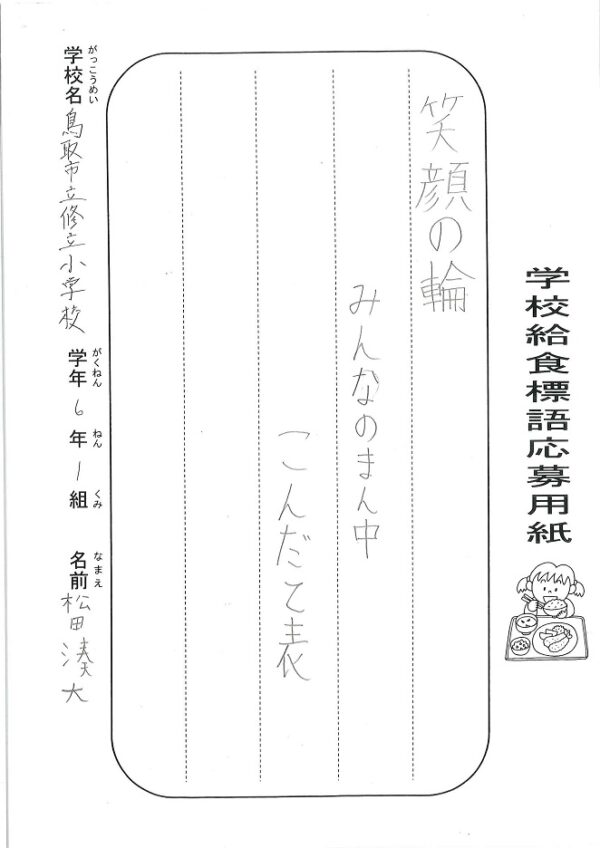 学校給食標語応募用紙
笑顔の輪
みんなのまん中
こんだて表
学校名 鳥取市立修立小学校 学年 6 年 1 組 名前 松田湊大
がっこうめい がくねん ねん くみ なまえ